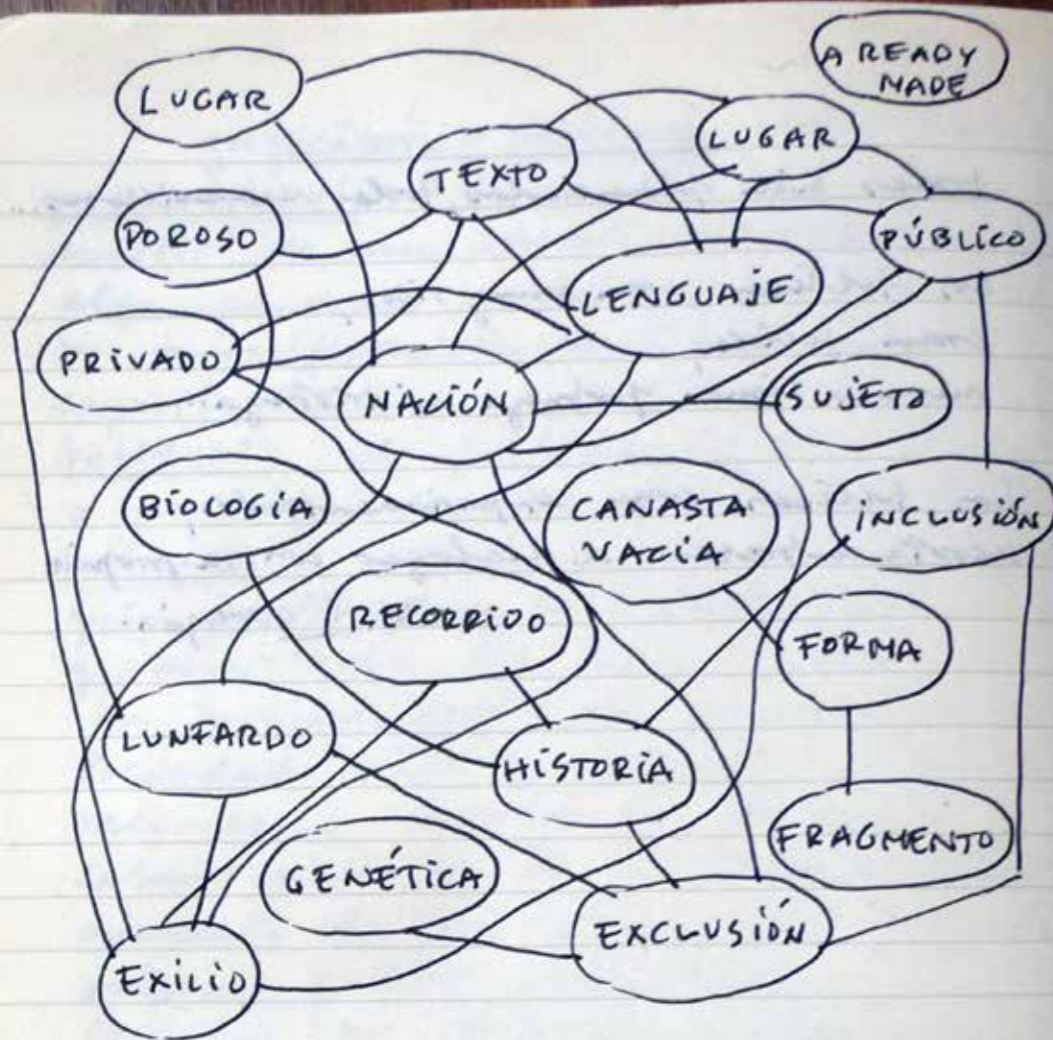 LUGAR
A READY
MADE
LUGAR
TEXTO
POROSO
PÚBLICO
LENGUAJE
PRIVADO
NACIÓN
SUJETO
BIOLOGIA
CANASTA
VACÍA
INCLUSIÓN
RECORRIDO
FORMA
LUNFARDO
HISTORIA
FRAGMENTO
GENÉTICA
EXCLUSIÓN
EXILIO